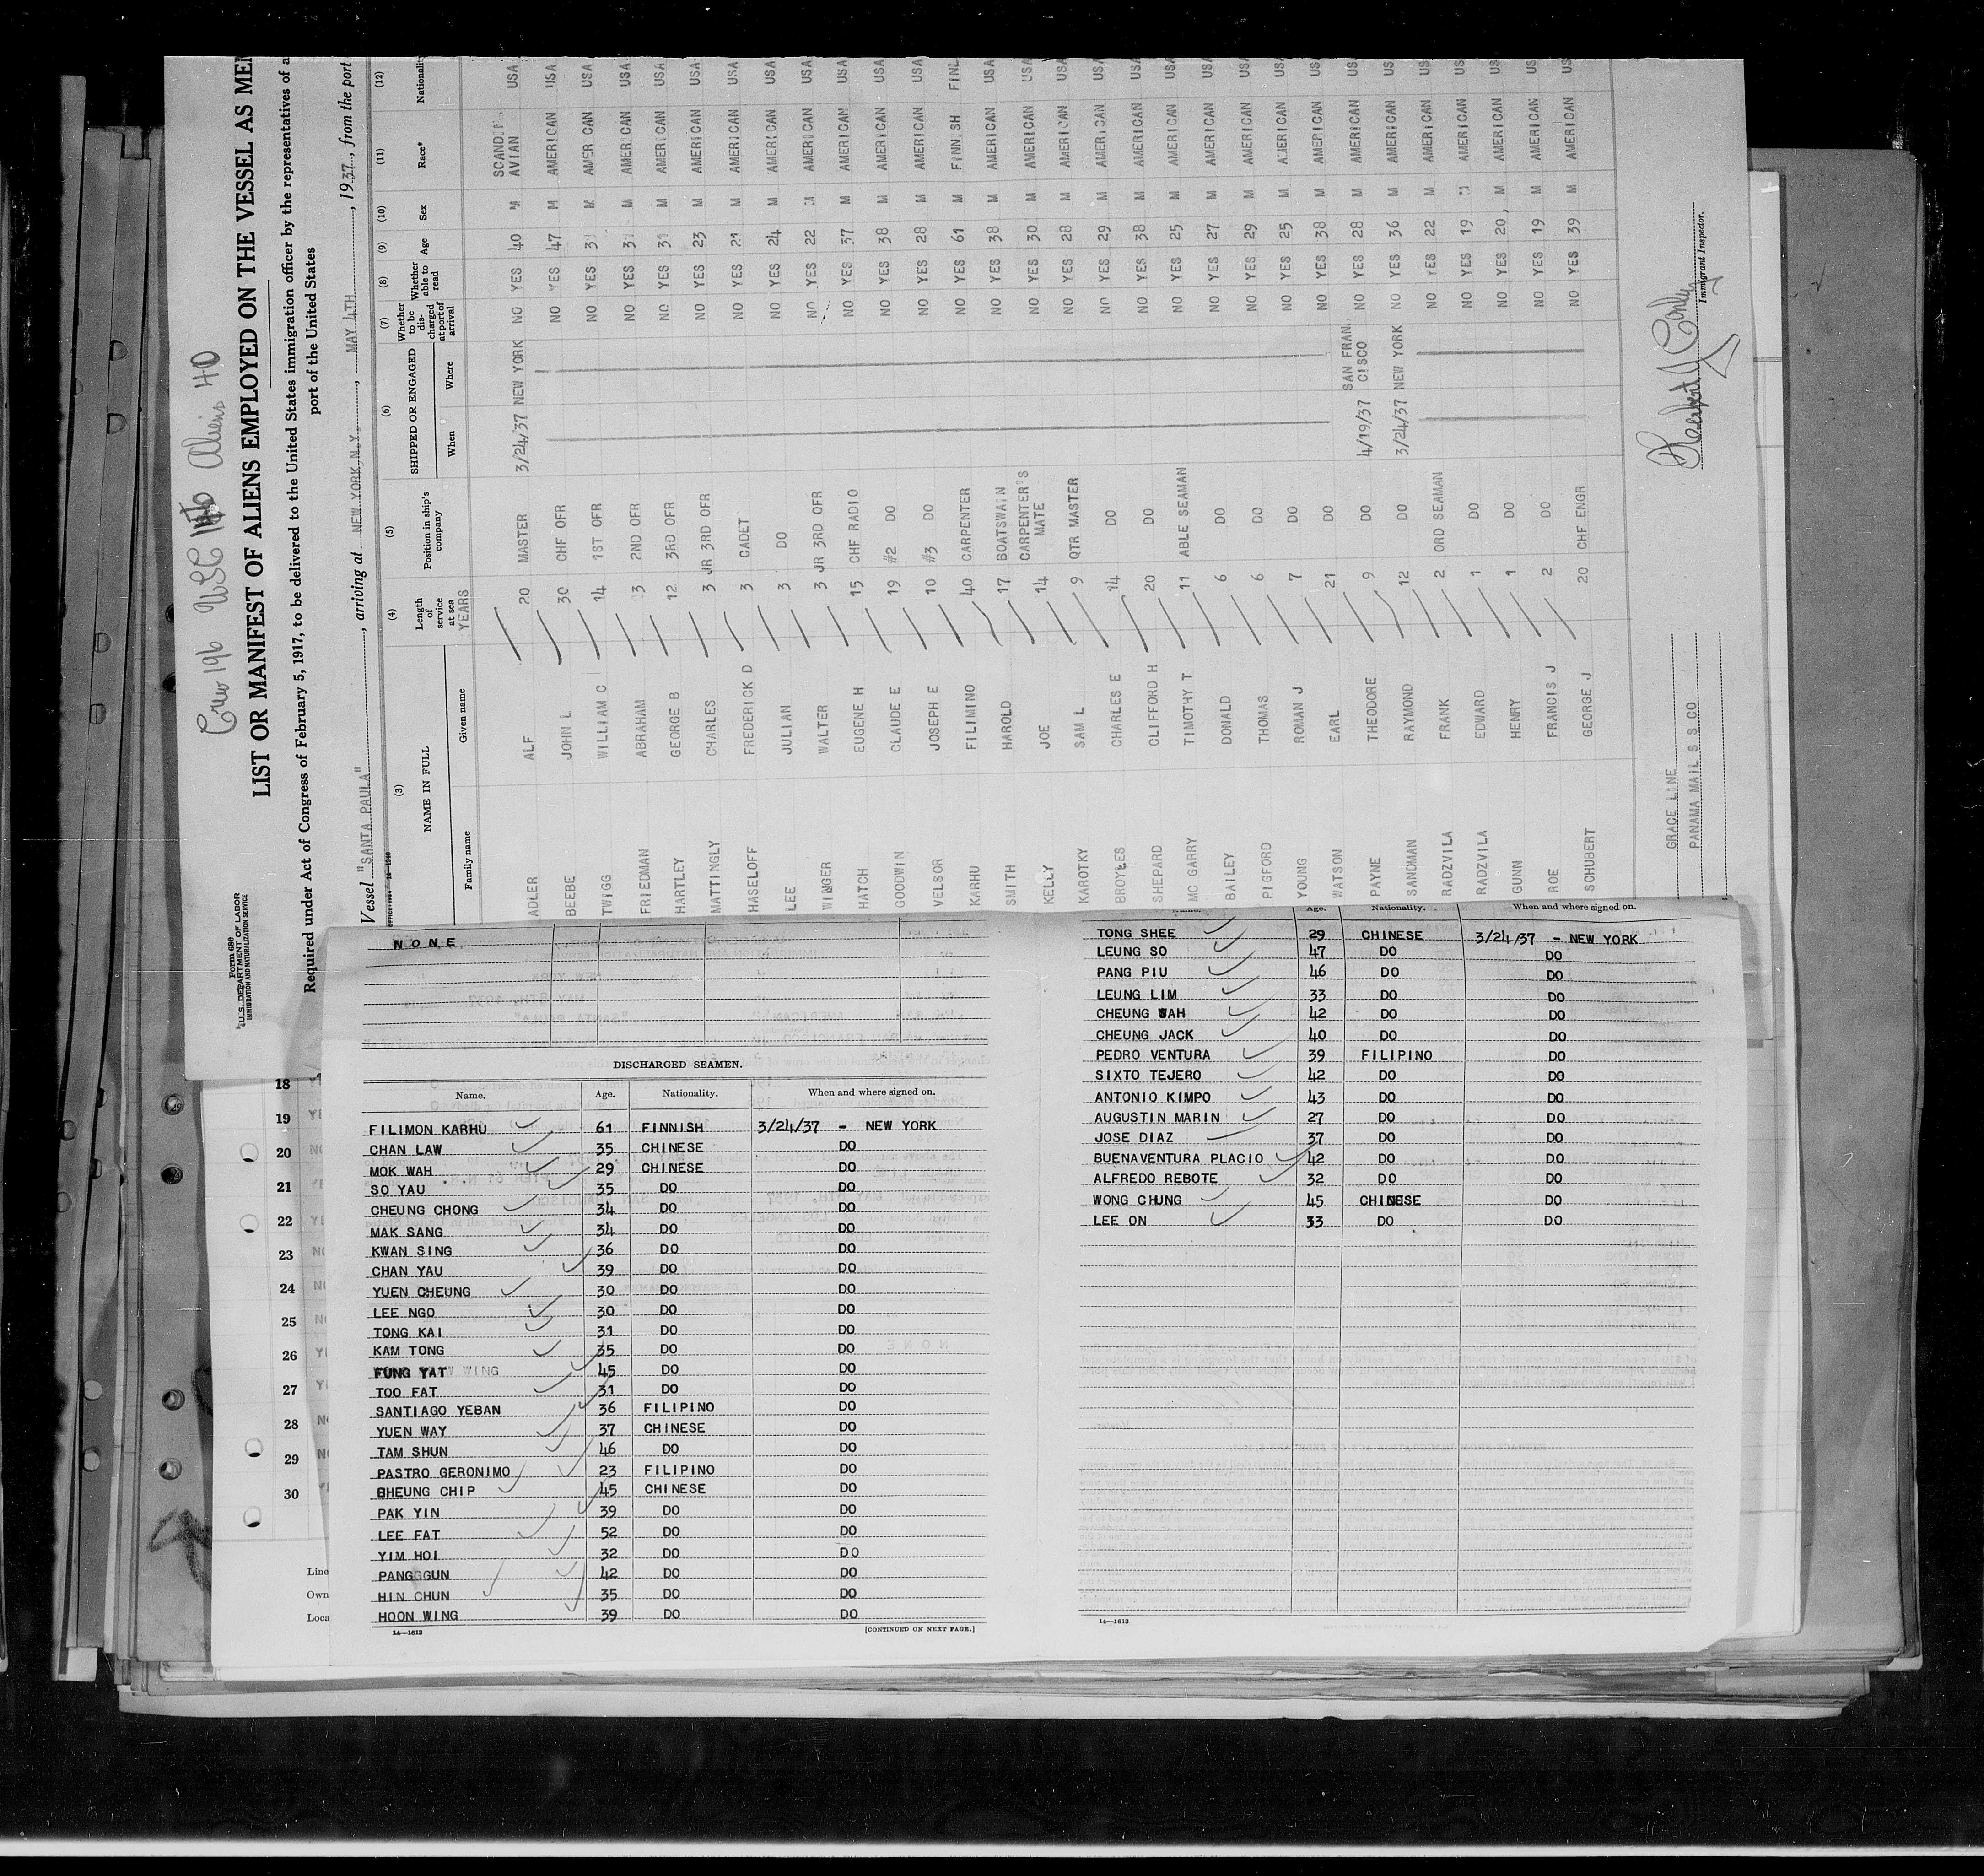 Crew 196 USC Aliens 40
LIST OR MANIFEST OF ALIENS EMPLOYED ON THE VESSEL AS MEM
Form 680
U.S. DEPARTMENT OF LABOR
IMMIGRATION AND NATURALIZATION SERVICE
Required under Act of Congress of February 5, 1917, to be delivered to the United States immigration officer by the representatives of a
port of the United States
Vessel "SANTA PAULA", arriving at NEW YORK, N.Y., MAY 4TH, 1937, from the port
(3) (4) (5) (6) (7) (8) (9) (10) (11) (12)
NAME IN FULL Length of service at sea Position in ship's company SHIPPED OR ENGAGED Whether to be discharged at port of arrival Whether able to read Age Sex Race* Nationality
Family name Given name YEARS When Where
ADLER ALF 20 MASTER 3/24/37 NEW YORK NO YES 40 M SCANDIN. AVIAN USA
BEEBE JOHN L 30 CHF OFR NO YES 47 M AMERICAN USA
TWIGG WILLIAM C 14 1ST OFR NO YES M AMERICAN USA
FRIEDMAN ABRAHAM 13 2ND OFR NO YES M AMERICAN USA
HARTLEY GEORGE B 12 3RD OFR NO YES M AMERICAN USA
MATTINGLY CHARLES 3 JR 3RD OFR NO YES 23 M AMERICAN USA
HASELOFF FREDERICK D 3 CADET NO YES 21 M AMERICAN USA
LEE JULIAN 3 DO NO YES 24 M AMERICAN USA
WINGER WALTER 3 JR 3RD OFR NO YES 22 M AMERICAN USA
HATCH EUGENE H 15 CHF RADIO NO YES 37 M AMERICAN USA
GOODWIN CLAUDE E 19 #2 DO NO YES 38 M AMERICAN USA
VELSOR JOSEPH E 10 #3 DO NO YES 28 M AMERICAN USA
KARHU FILIMINO 40 CARPENTER NO YES 61 M FINNISH FINL
SMITH HAROLD 17 BOATSWAIN NO YES 38 M AMERICAN USA
KELLY JOE 14 CARPENTER'S MATE NO YES 30 M AMERICAN USA
KAROTKY SAM L 9 QTR MASTER NO YES 28 M AMERICAN USA
BROYLES CHARLES E 14 DO NO YES 29 M AMERICAN USA
SHEPARD CLIFFORD H 20 DO NO YES 38 M AMERICAN USA
MC GARRY TIMOTHY T 11 ABLE SEAMAN NO YES 25 M AMERICAN USA
BAILEY DONALD 6 DO NO YES 27 M AMERICAN USA
PIGFORD THOMAS 6 DO NO YES 29 M AMERICAN USA
YOUNG ROMAN J 7 DO NO YES 25 M AMERICAN USA
WATSON EARL 21 DO NO YES 38 M AMERICAN US
PAYNE THEODORE 9 DO 4/19/37 SAN FRAN. CISCO NO YES 28 M AMERICAN US
SANDMAN RAYMOND 12 DO 3/24/37 NEW YORK NO YES 36 M AMERICAN US
RADZVILA FRANK 2 ORD SEAMAN NO YES 22 M AMERICAN US
RADZVILA EDWARD 1 DO NO YES 19 M AMERICAN US
GUNN HENRY 1 DO NO YES 20 M AMERICAN US
ROE FRANCIS J 2 DO NO YES 19 M AMERICAN US
SCHUBERT GEORGE J 20 CHF ENGR NO YES 39 M AMERICAN US
GRACE LINE
PANAMA MAIL S S CO
Immigrant Inspector.
NONE
DISCHARGED SEAMEN.
Name. Age. Nationality. When and where signed on.
FILIMON KARHU 61 FINNISH 3/24/37 - NEW YORK
CHAN LAW 35 CHINESE DO
MOK WAH 29 CHINESE DO
SO YAU 35 DO DO
CHEUNG CHONG 34 DO DO
MAK SANG 34 DO DO
KWAN SING 36 DO DO
CHAN YAU 39 DO DO
YUEN CHEUNG 30 DO DO
LEE NGO 30 DO DO
TONG KAI 31 DO DO
KAM TONG 35 DO DO
FUNG YAT WING 45 DO DO
TOO FAT 31 DO DO
SANTIAGO YEBAN 36 FILIPINO DO
YUEN WAY 37 CHINESE DO
TAM SHUN 46 DO DO
PASTRO GERONIMO 23 FILIPINO DO
CHEUNG CHIP 45 CHINESE DO
PAK YIN 39 DO DO
LEE FAT 52 DO DO
YIM HOI 32 DO DO
PANGGGUN 42 DO DO
HIN CHUN 35 DO DO
HOON WING 39 DO DO
14—1613 [CONTINUED ON NEXT PAGE.]
Name. Age. Nationality. When and where signed on.
TONG SHEE 29 CHINESE 3/24/37 - NEW YORK
LEUNG SO 47 DO DO
PANG PIU 46 DO DO
LEUNG LIM 33 DO DO
CHEUNG WAH 42 DO DO
CHEUNG JACK 40 DO DO
PEDRO VENTURA 39 FILIPINO DO
SIXTO TEJERO 42 DO DO
ANTONIO KIMPO 43 DO DO
AUGUSTIN MARIN 27 DO DO
JOSE DIAZ 37 DO DO
BUENAVENTURA PLACIO 42 DO DO
ALFREDO REBOTE 32 DO DO
WONG CHUNG 45 CHINESE DO
LEE ON 33 DO DO
14—1613
18
19
20
21
22
23
24
25
26
27
28
29
30
Line
Own
Loca